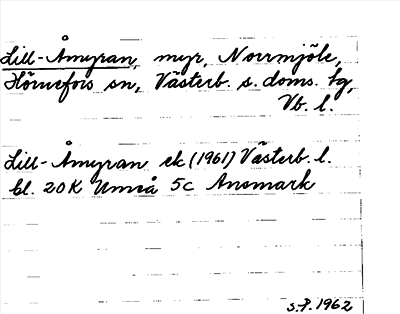 Lill-Åmyran, myr, Norrmjöle,
Hörnefors sn, Västerb. s. doms. tg,
Vb. l.
Lill-Åmyran ek (1961) Västerb. l.
bl. 20K Umeå 5c Ansmark
S.P. 1962